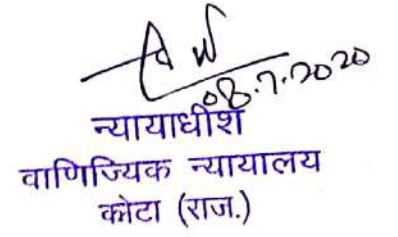 08.7.2020
न्यायाधीश
वाणिज्यिक न्यायालय
कोटा (राज.)